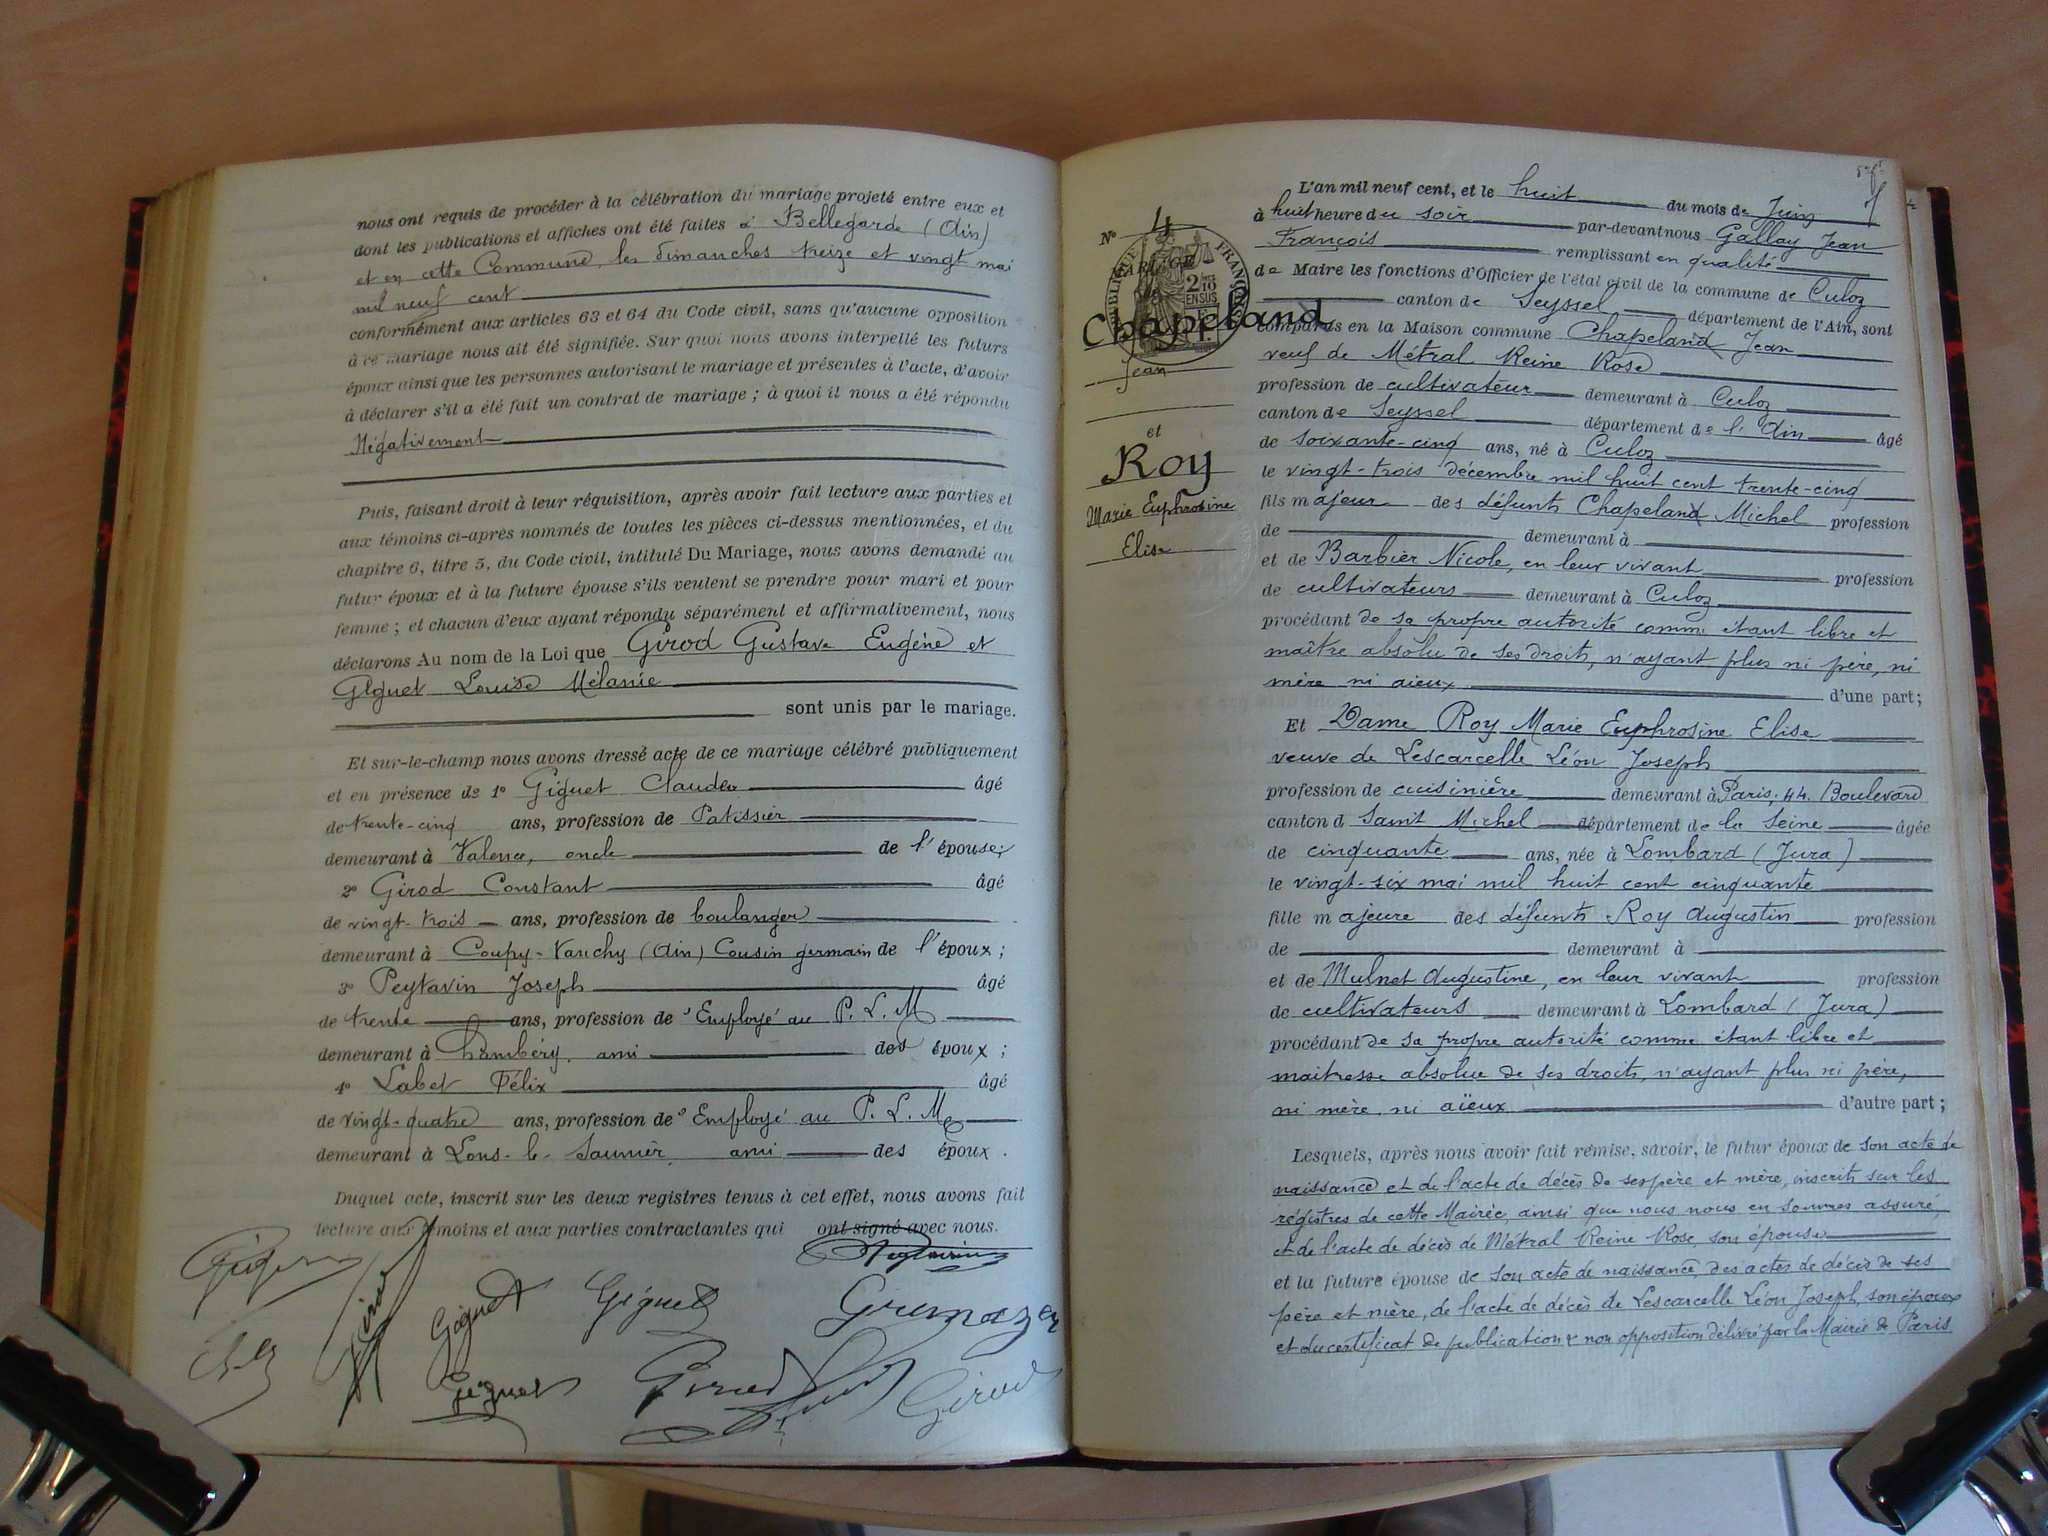 nous ont requis de procéder à la célébration du mariage projeté entre eux et
dont les publications et affiches ont été faites à Bellegarde (Ain)
et en cette Commune, les dimanches treize et vingt mai
mil neuf cent
conformément aux articles 63 et 64 du Code civil, sans qu'aucune opposition
à ce mariage nous ait été signifiée. Sur quoi nous avons interpellé les futurs
époux ainsi que les personnes autorisant le mariage et présentes à l'acte, d'avoir
à déclarer s'il a été fait un contrat de mariage ; à quoi il nous a été répondu
Négativement
Puis, faisant droit à leur réquisition, après avoir fait lecture aux parties et
aux témoins ci-après nommés de toutes les pièces ci-dessus mentionnées, et du
chapitre 6, titre 5, du Code civil, intitulé Du Mariage, nous avons demandé au
futur époux et à la future épouse s'ils veulent se prendre pour mari et pour
femme ; et chacun d'eux ayant répondu séparément et affirmativement, nous
déclarons Au nom de la Loi que Girod Gustave Eugène et
Giguet Louise Mélanie
sont unis par le mariage.
Et sur-le-champ nous avons dressé acte de ce mariage célébré publiquement
et en présence de 1° Giguet Claude âgé
de trente-cinq ans, profession de Patissier
demeurant à Valence, oncle de l'épouse;
2° Girod Constant âgé
de vingt-trois ans, profession de boulanger
demeurant à Coupy-Vanchy (Ain) Cousin germain de l'époux ;
3° Peytavin Joseph âgé
de trente ans, profession de Employé au P. L. M
demeurant à Chambéry, ami des époux ;
4° Labet Félix âgé
de vingt-quatre ans, profession de Employé au P. L. M
demeurant à Lons-le-Saunier, ami des époux.
Duquel acte, inscrit sur les deux registres tenus à cet effet, nous avons fait
lecture aux témoins et aux parties contractantes qui ont signé avec nous.
Peytavin
Giguet
Girod
Giguet
Giguet
Grumazer
Giguet
Girod
Girod
N° 4
MARIAGE
de
RÉPUBLIQUE FRANÇAISE
2 10 EN SUS
Chapeland
Jean
et
Roy
Marie Euphrosine
Elise
L'an mil neuf cent, et le huit du mois de Juin
à huit heure du soir par-devant nous Gallay Jean
François remplissant en qualité
de Maire les fonctions d'Officier de l'état civil de la commune de Culoz
canton de Seyssel département de l'Ain, sont
comparus en la Maison commune Chapeland Jean
veuf de Métral Reine Rose
profession de cultivateur demeurant à Culoz
canton de Seyssel département de l'Ain âgé
de soixante-cinq ans, né à Culoz
le vingt-trois décembre mil huit cent trente-cinq
fils majeur des défunts Chapeland Michel profession
de demeurant à
et de Barbier Nicole, en leur vivant profession
de cultivateurs demeurant à Culoz
procédant de sa propre autorité comme étant libre et
maître absolu de ses droits, n'ayant plus ni père, ni
mère ni aieux d'une part;
Et Dame Roy Marie Euphrosine Elise
veuve de Lescarcelle Léon Joseph
profession de cuisinière demeurant à Paris, 44. Boulevard
canton d Saint Michel département de la Seine âgée
de cinquante ans, née à Lombard (Jura)
le vingt-six mai mil huit cent cinquante
fille majeure des défunts Roy Augustin profession
de demeurant à
et de Mulnet Augustine, en leur vivant profession
de cultivateurs demeurant à Lombard (Jura)
procédant de sa propre autorité comme étant libre et
maitresse absolue de ses droits, n'ayant plus ni père,
ni mère, ni aïeux d'autre part ;
Lesquels, après nous avoir fait remise, savoir, le futur époux de son acte de
naissance et de l'acte de décès de ses père et mère, inscrits sur les
régistres de cette Mairie, ainsi que nous nous en sommes assuré,
et de l'acte de décès de Métral Reine Rose, son épouse
et la future épouse de son acte de naissance, des actes de décès de ses
père et mère, de l'acte de décès de Lescarcelle Léon Joseph, son époux
et du certificat de publication & non opposition délivré par la Mairie de Paris